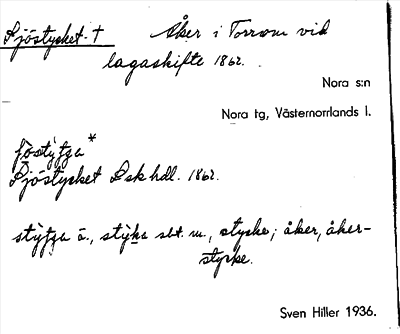 Sjöstycket. † Åker i Torrom vid
lagaskifte 1862.
Nora s:n
Nora tg, Västernorrlands l.
*
Sjöstycket Lsk hdl. 1862.
stýtja ä., stýka sbt. m., stycke; åker, åker-
stycke.
Sven Hiller 1936.